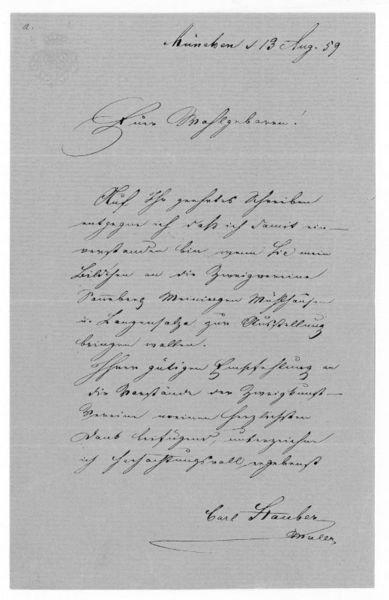 a.
München d 13 Aug. 59
Euer Wohlgeboren!
Auf Ihr geehrtes Schreiben
entgegne ich daß ich damit ein-
verstanden bin wenn Sie mein
Bildchen an die Zweigvereine
Sonneberg Meiningen Mühlhausen
u Langensalza zur Ausstellung
bringen wollen.
Ihrer gütigen Empfehlung an
die Vorstände der Zweigkunst-
Vereine meinen herzlichsten
Dank beifügend, unterzeichne
ich hochachtungsvoll ergebenst
Carl Stauber
Maler